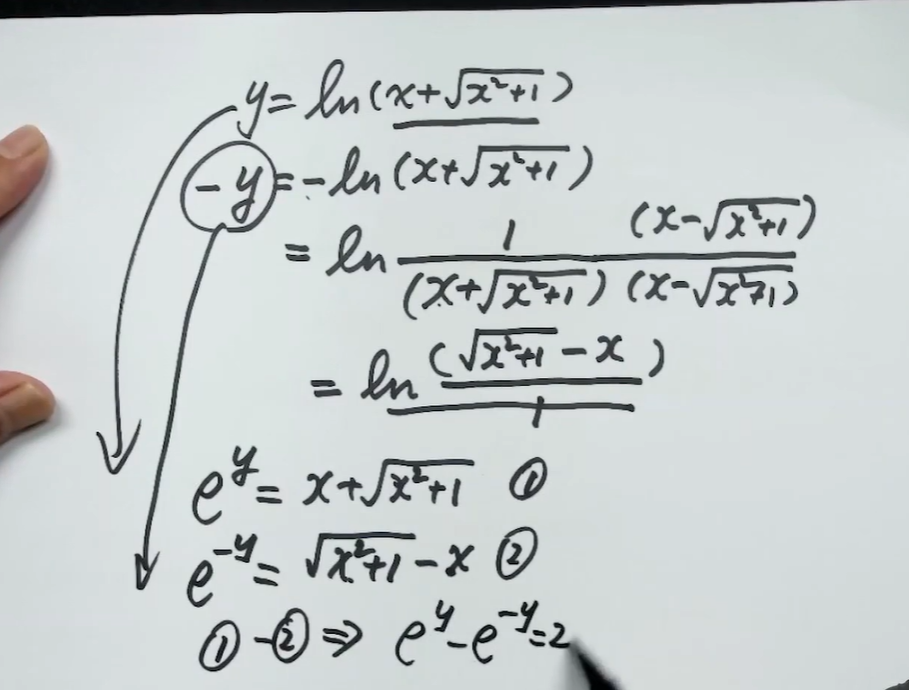 y = ln(x+√(x²+1))
-y = -ln(x+√(x²+1))
= ln 1 (x-√(x²+1)) / (x+√(x²+1)) (x-√(x²+1))
= ln (√(x²+1) - x) / 1
e^y = x+√(x²+1) ①
e^-y = √(x²+1) - x ②
① - ② ⇒ e^y - e^-y = 2